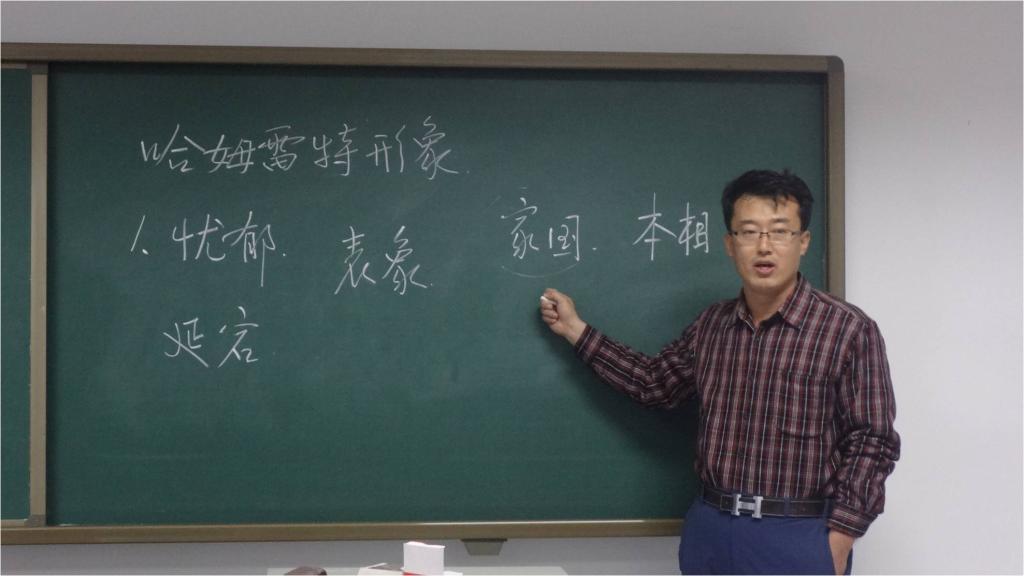 哈姆雷特形象.
1. 忧郁. 表象. 家国. 本相
延宕